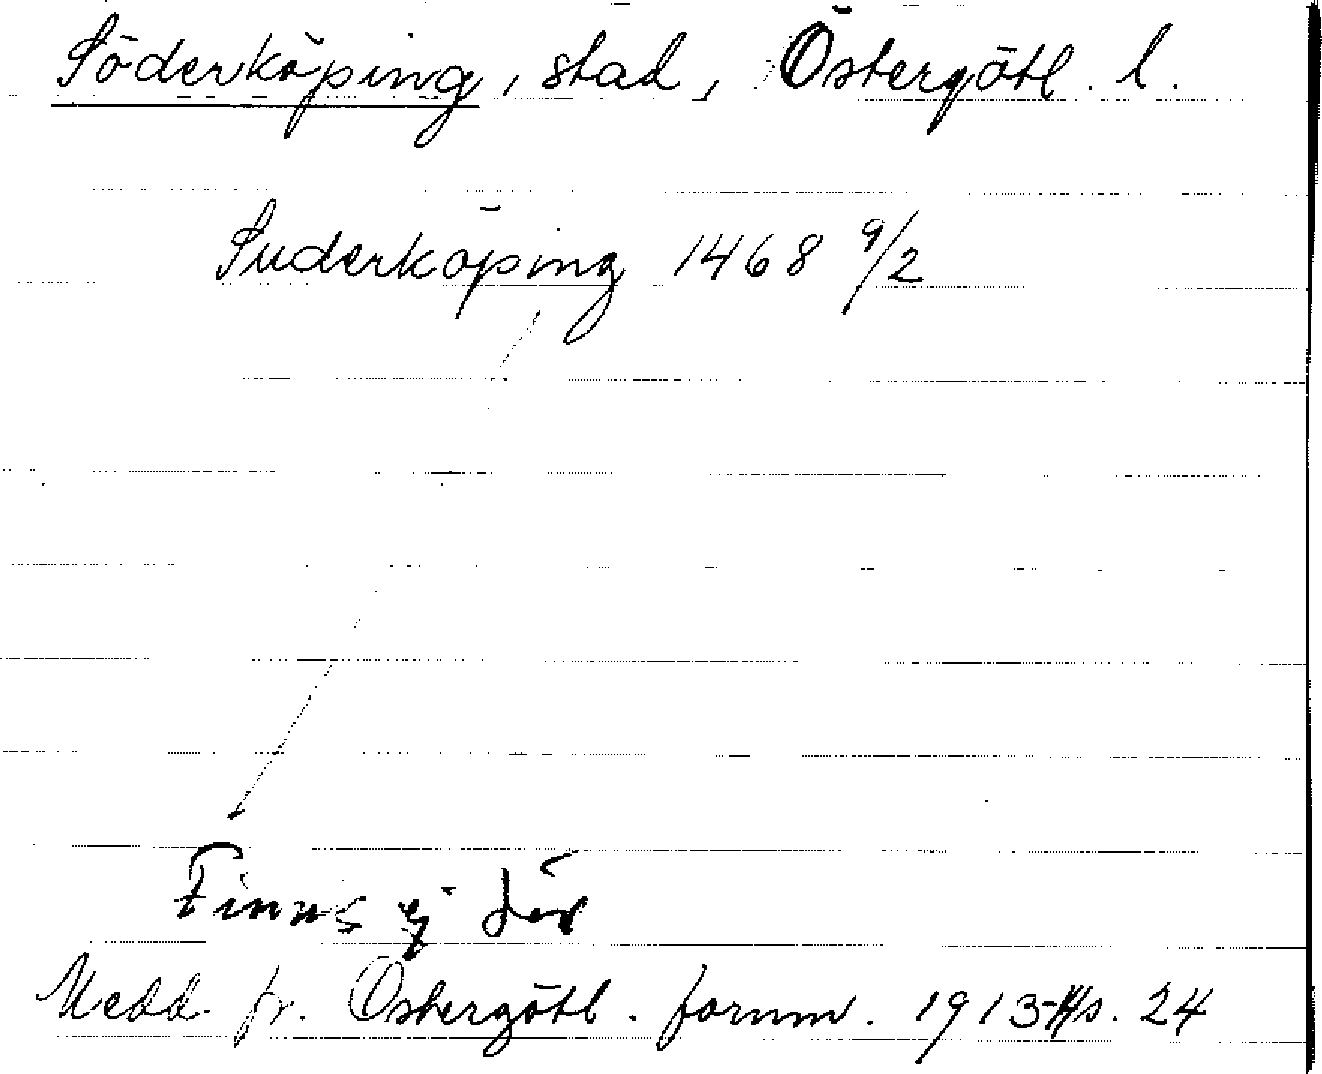 Söderköping, stad, Östergötl. l.
Suderköping 1468 9/2
Finns ej där
Medd. fr. Östergötl. fornm. 1913 s. 24